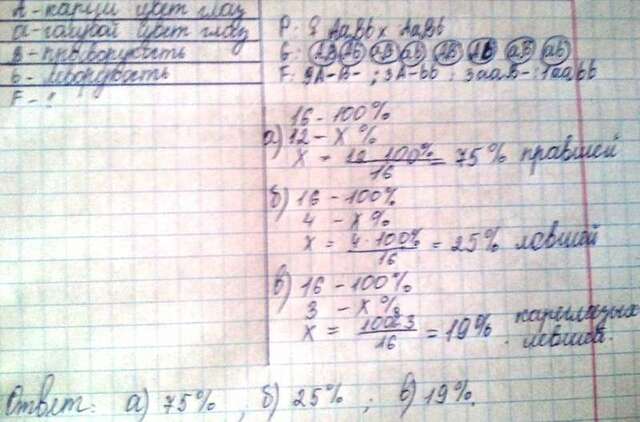 A - карий цвет глаз
a - голубой цвет глаз
B - праворукость
b - леворукость
F - ?
P: ♀ AaBb x AaBb
G: AB Ab aB ab AB Ab aB ab
F: 9A-B- ; 3A-bb ; 3aaB- ; 1aabb
16 - 100%
а) 12 - x%
x = 12·100% / 16 = 75% правшей
б) 16 - 100%
4 - x%
x = 4·100% / 16 = 25% левшей
в) 16 - 100%
3 - x%
x = 100·3 / 16 = 19% кареглазых
левшей.
Ответ: а) 75% ; б) 25% ; в) 19%.